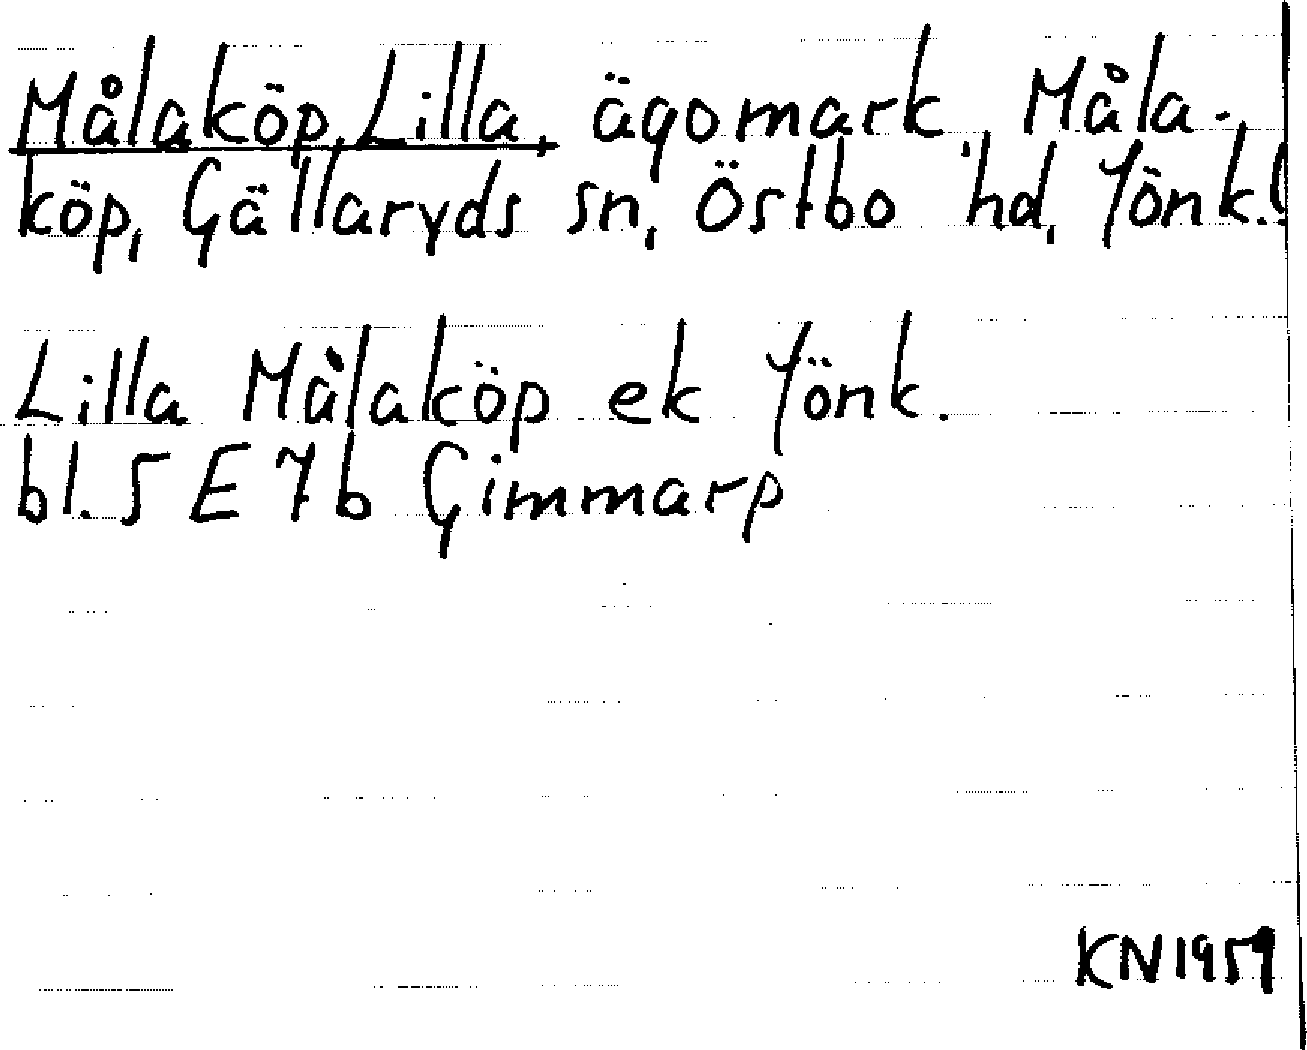 Målaköp, Lilla, ägomark, Måla-
köp, Gällaryds sn, Östbo hd, Jönk.
Lilla Målaköp ek Jönk.
bl. 5 E 7 b Gimmarp
KN 1959